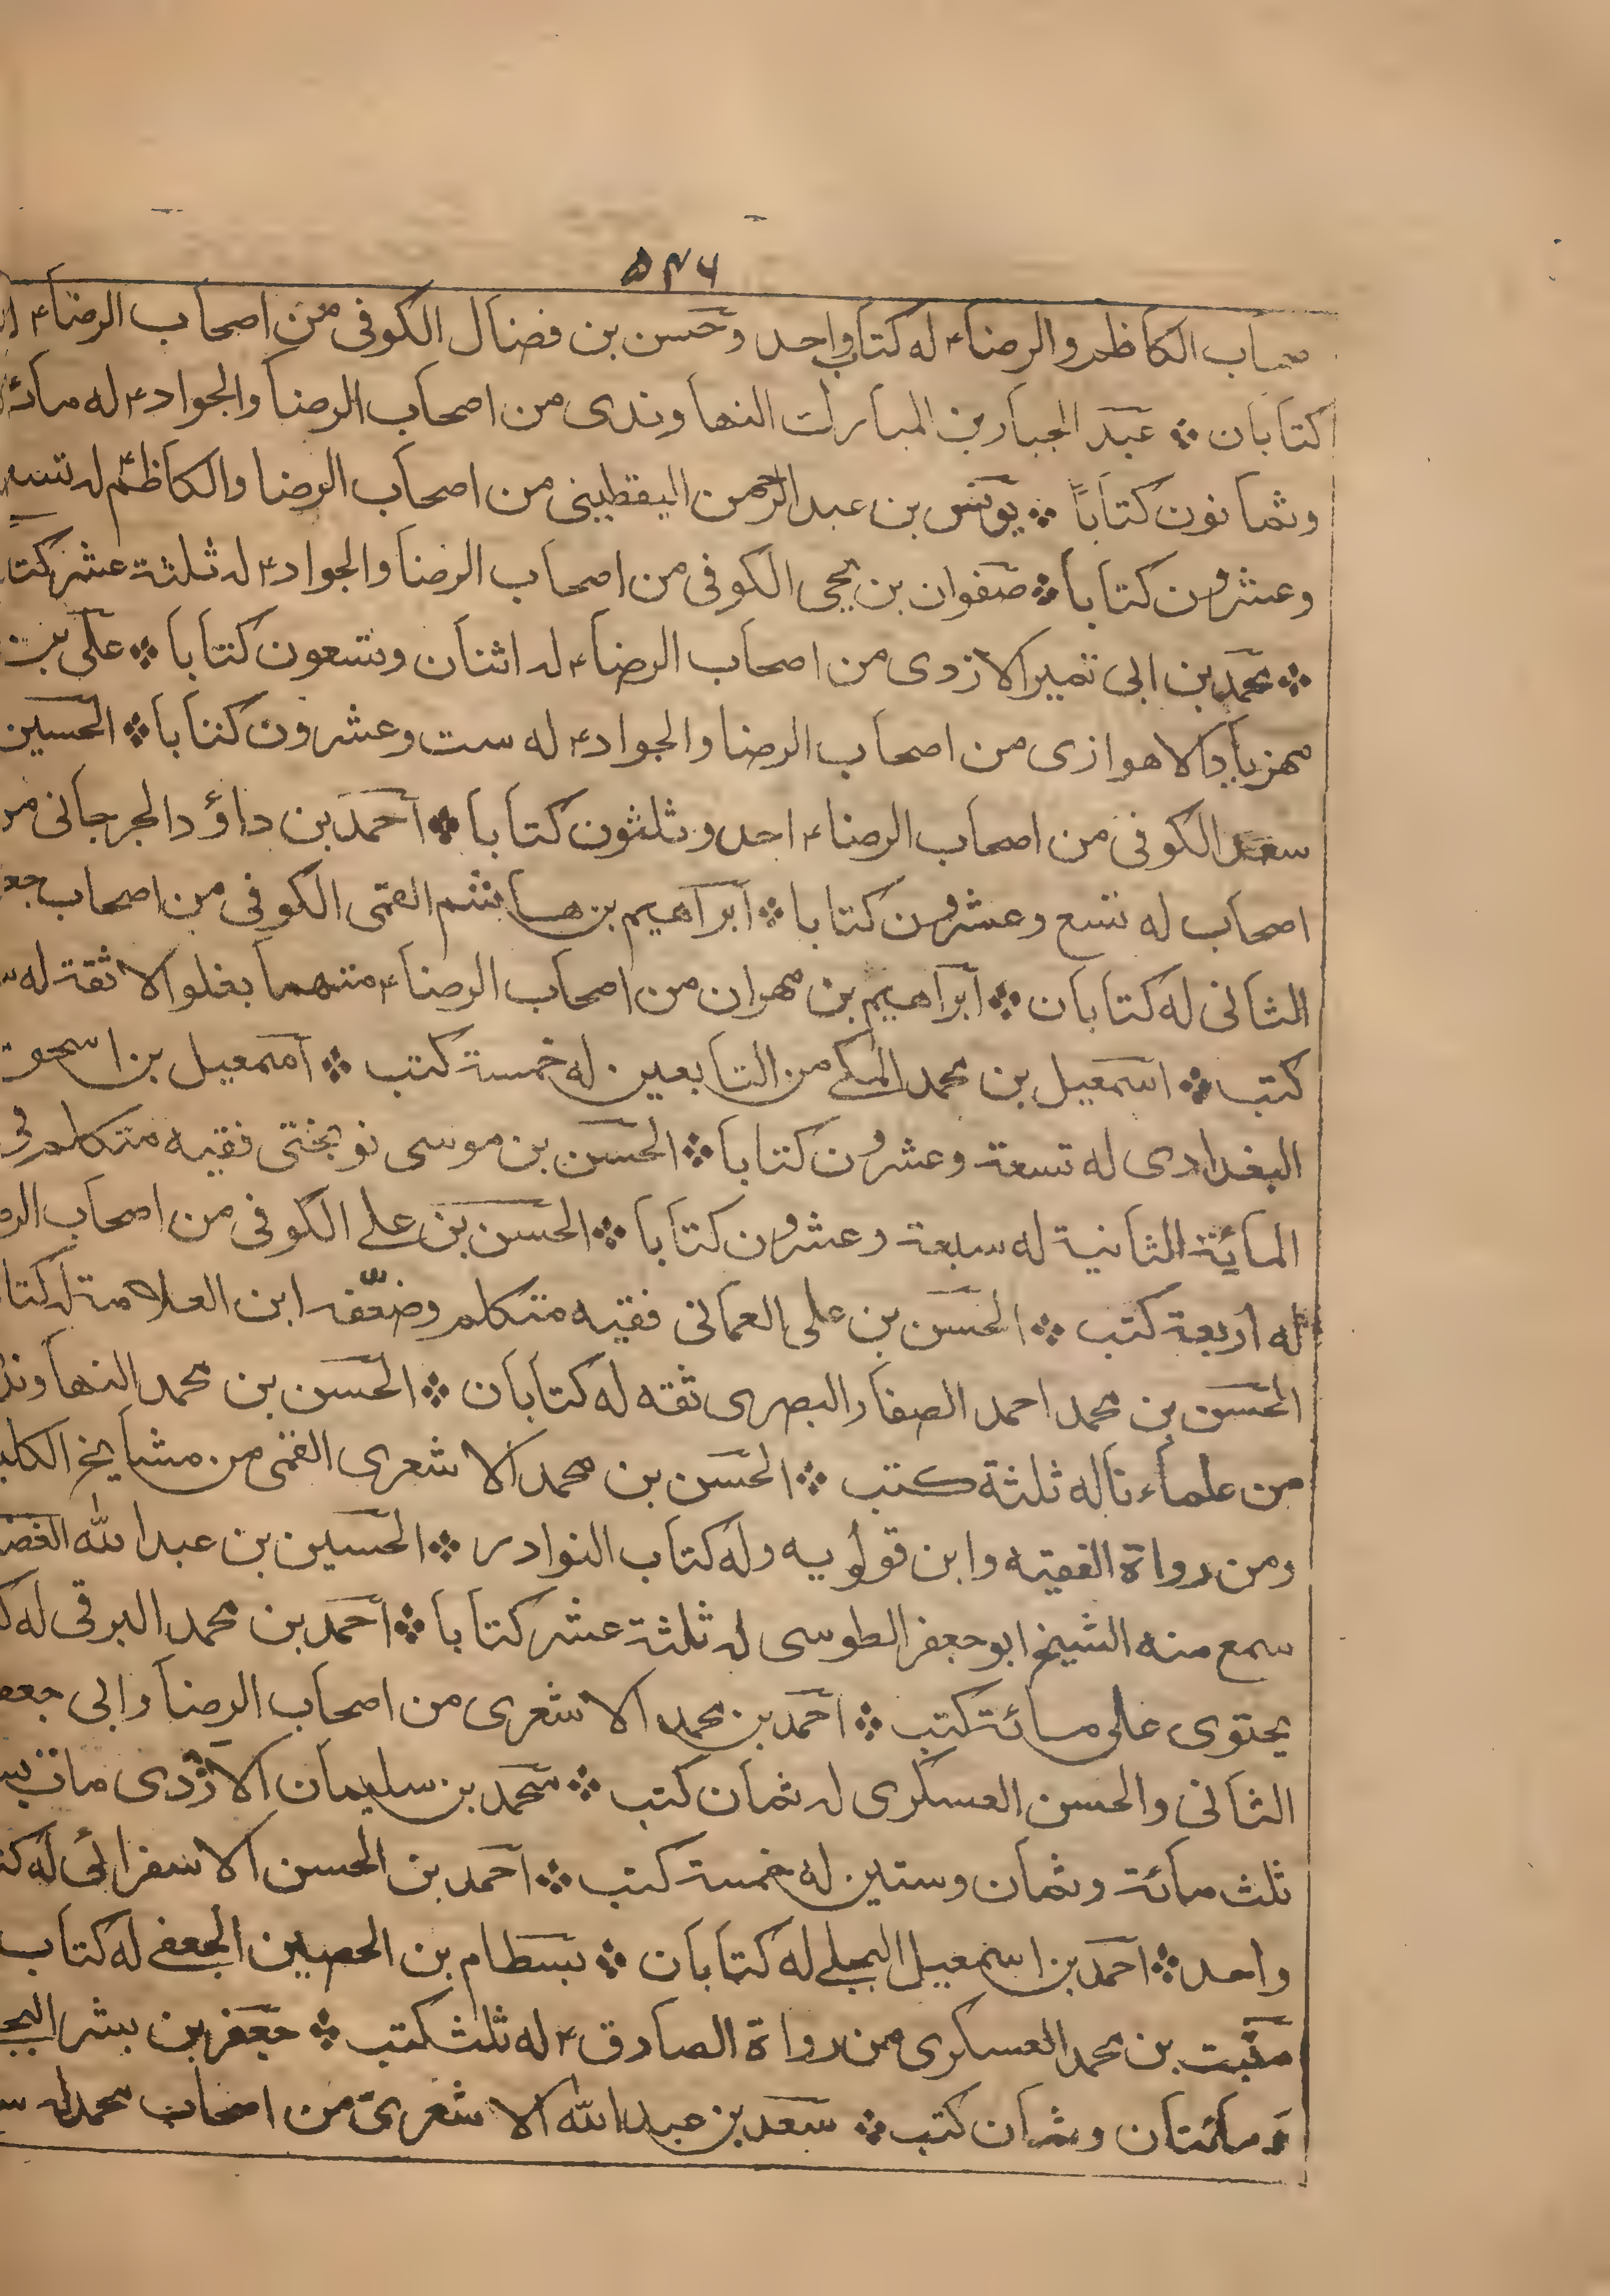 ۵۴۶
صحاب الكاظم والرضاء۴ له كتاب واحد وحسن بن فضال الكوفى من اصحاب الرضاء۴
كتابان ❖ عبد الجبار بن المبارك النهاوندى من اصحاب الرضا والجواد۴ له مائة
وثمانون كتاباً ❖ يونس بن عبد الرحمن اليقطينى من اصحاب الرضا والكاظم۴ له تسعة
وعشرون كتابا ❖ صفوان بن يحيى الكوفى من اصحاب الرضا والجواد۴ له ثلثة عشر كتا
❖ محمد بن ابى عمير الازدى من اصحاب الرضاء۴ له اثنان وتسعون كتابا ❖ على بن
مهزياد الاهوازى من اصحاب الرضا والجواد۴ له ست وعشرون كتابا ❖ الحسين
سعيد الكوفى من اصحاب الرضاء۴ احد وثلثون كتابا ❖ احمد بن داؤد الجرجانى من
اصحاب له تسع وعشرون كتابا ❖ ابراهيم بن هاشم القمى الكوفى من اصحاب جعـ
الثانى له كتابان ❖ ابراهيم بن مهران من اصحاب الرضاء۴ متهما بغلو الا ثقة له
كتب ❖ اسمعيل بن محمد المكى من التابعين له خمسة كتب ❖ اسمعيل بن اسحق
البغدادى له تسعة وعشرون كتابا ❖ الحسن بن موسى نوبختى فقيه متكلم فى
المائة الثانية له سبعة وعشرون كتابا ❖ الحسن بن على الكوفى من اصحاب الر
له اربعة كتب ❖ الحسن بن على العمانى فقيه متكلم وضعّفه ابن العلامة له كتا
الحسن بن محمد احمد الصفار البصرى ثقه له كتابان ❖ الحسن بن محمد النهاوند
من علماءنا له ثلثة كتب ❖ الحسن بن محمد الاشعرى القمى من مشايخ الكلي
ومن رواة الفقيه وابن قولويه وله كتاب النوادر ❖ الحسين بن عبد الله الغضـ
سمع منه الشيخ ابو جعفر الطوسى له ثلثة عشر كتابا ❖ احمد بن محمد البرقى له ك
يحتوى على مائة كتب ❖ احمد بن محمد الاشعرى من اصحاب الرضا وابى جعفـ
الثانى والحسن العسكرى له ثمان كتب ❖ محمد بن سليمان الازدى مات
ثلث مائة وثمان وستين له خمسة كتب ❖ احمد بن الحسن الاسفرائى له كتـ
واحد ❖ احمد بن اسمعيل البجلى له كتابان ❖ بسطام بن الحصين الجعفى له كتاب
بن محمد العسكرى من رواة الصادق۴ له ثلث كتب ❖ جعفر بن بشر البجـ
مائتان وثمان كتب ❖ سعد بن عبد الله الاشعرى من اصحاب محمد له